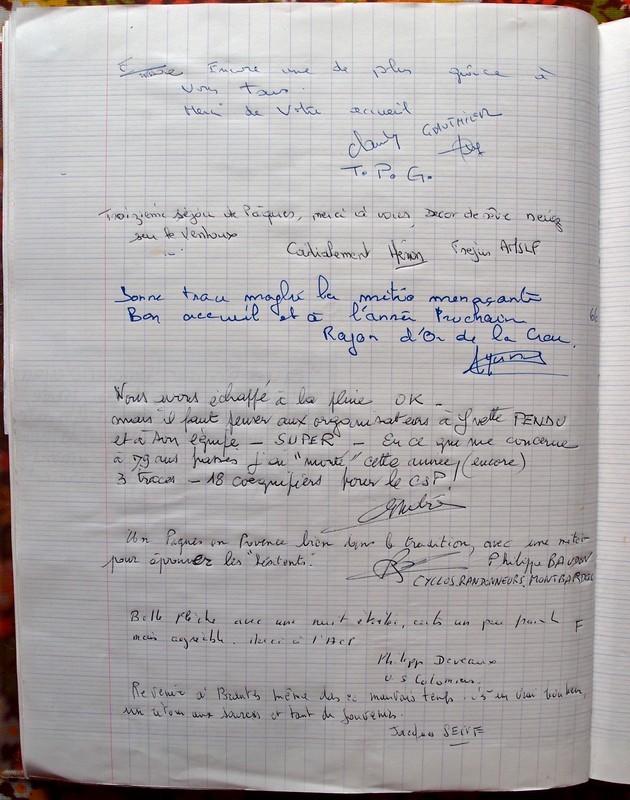 Encore une de plus grâce à
vous tous.
Merci de votre accueil
Claude GAUTHIER
T.P.G.
Troizième séjour de Pâques, merci à vous, Decor de rêve neige
sur le Ventoux
Cordialement Fréjus AMSLF
Bonne trace maglré la météo menaçante
Bon accueil et à l'année Prochain
Rayon d'Or de la Crau.
66
Nous avons échappé à la pluie OK -
mais il faut penser aux organisateurs à Yvette PENDU
et à son équipe - SUPER - En ce que me concerne
à 79 ans passés j'ai "monté" cette année, (encore)
3 traces - 18 coéquipiers pour le CSP!
Un Pâques en Provence bien dans la tradition, avec une météo
pour éprouver les "hésitants".
Philippe BAUDON
CYCLOS RANDONNEURS MONTBARDOIS
Belle flèche avec une nuit étoilée, certes un peu fraiche
mais agréable. Merci à l'ACP
F
Philippe Deveaux
U S Colomiers.
Revenir à Brantes même des mauvais temps c'est un vrai bonheur,
un retour aux sources et tant de souvenirs.
Jacques SEIVE